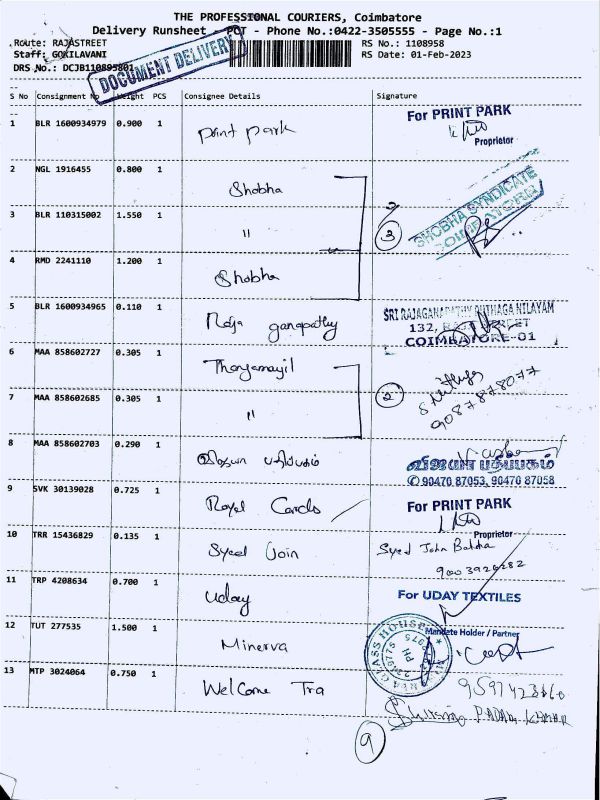 THE PROFESSIONAL COURIERS, Coimbatore
Delivery Runsheet - PCT - Phone No.:0422-3505555 - Page No.:1
Route: RAJASTREET RS No.: 1108958
Staff: GOKILAVANI RS Date: 01-Feb-2023
DRS No.: DCJB110895801
DOCUMENT DELIVERY
S No Consignment No Weight PCS Consignee Details Signature
1 BLR 1600934979 0.900 1 Print park
For PRINT PARK
Proprietor
2 NGL 1916455 0.800 1 Shobha
SHOBHA SYNDICATE
COIMBATORE
3 BLR 110315002 1.550 1 "
3
4 RMD 2241110 1.200 1 Shobha
5 BLR 1600934965 0.110 1 Raja ganapathy
SRI RAJAGANAPATHY PUTHAGA NILAYAM
132, STREET
COIMBATORE-01
6 MAA 858602727 0.305 1 Thangamayil
7 MAA 858602685 0.305 1 "
2
9087878077
8 MAA 858602703 0.290 1 விஜயா பதிப்பகம்
விஜயா பதிப்பகம்
90470 87053, 90470 87058
9 SVK 30139028 0.725 1 Royal Cards
For PRINT PARK
Proprietor
10 TRR 15436829 0.135 1 Syeed
Syed John Batcha
11 TRP 4208634 0.700 1 Uday
For UDAY TEXTILES
Mandate Holder / Partner
12 TUT 277535 1.500 1 Minerva
GLASS HOUSE
13 MTP 3024064 0.750 1 Welcome Tra
9